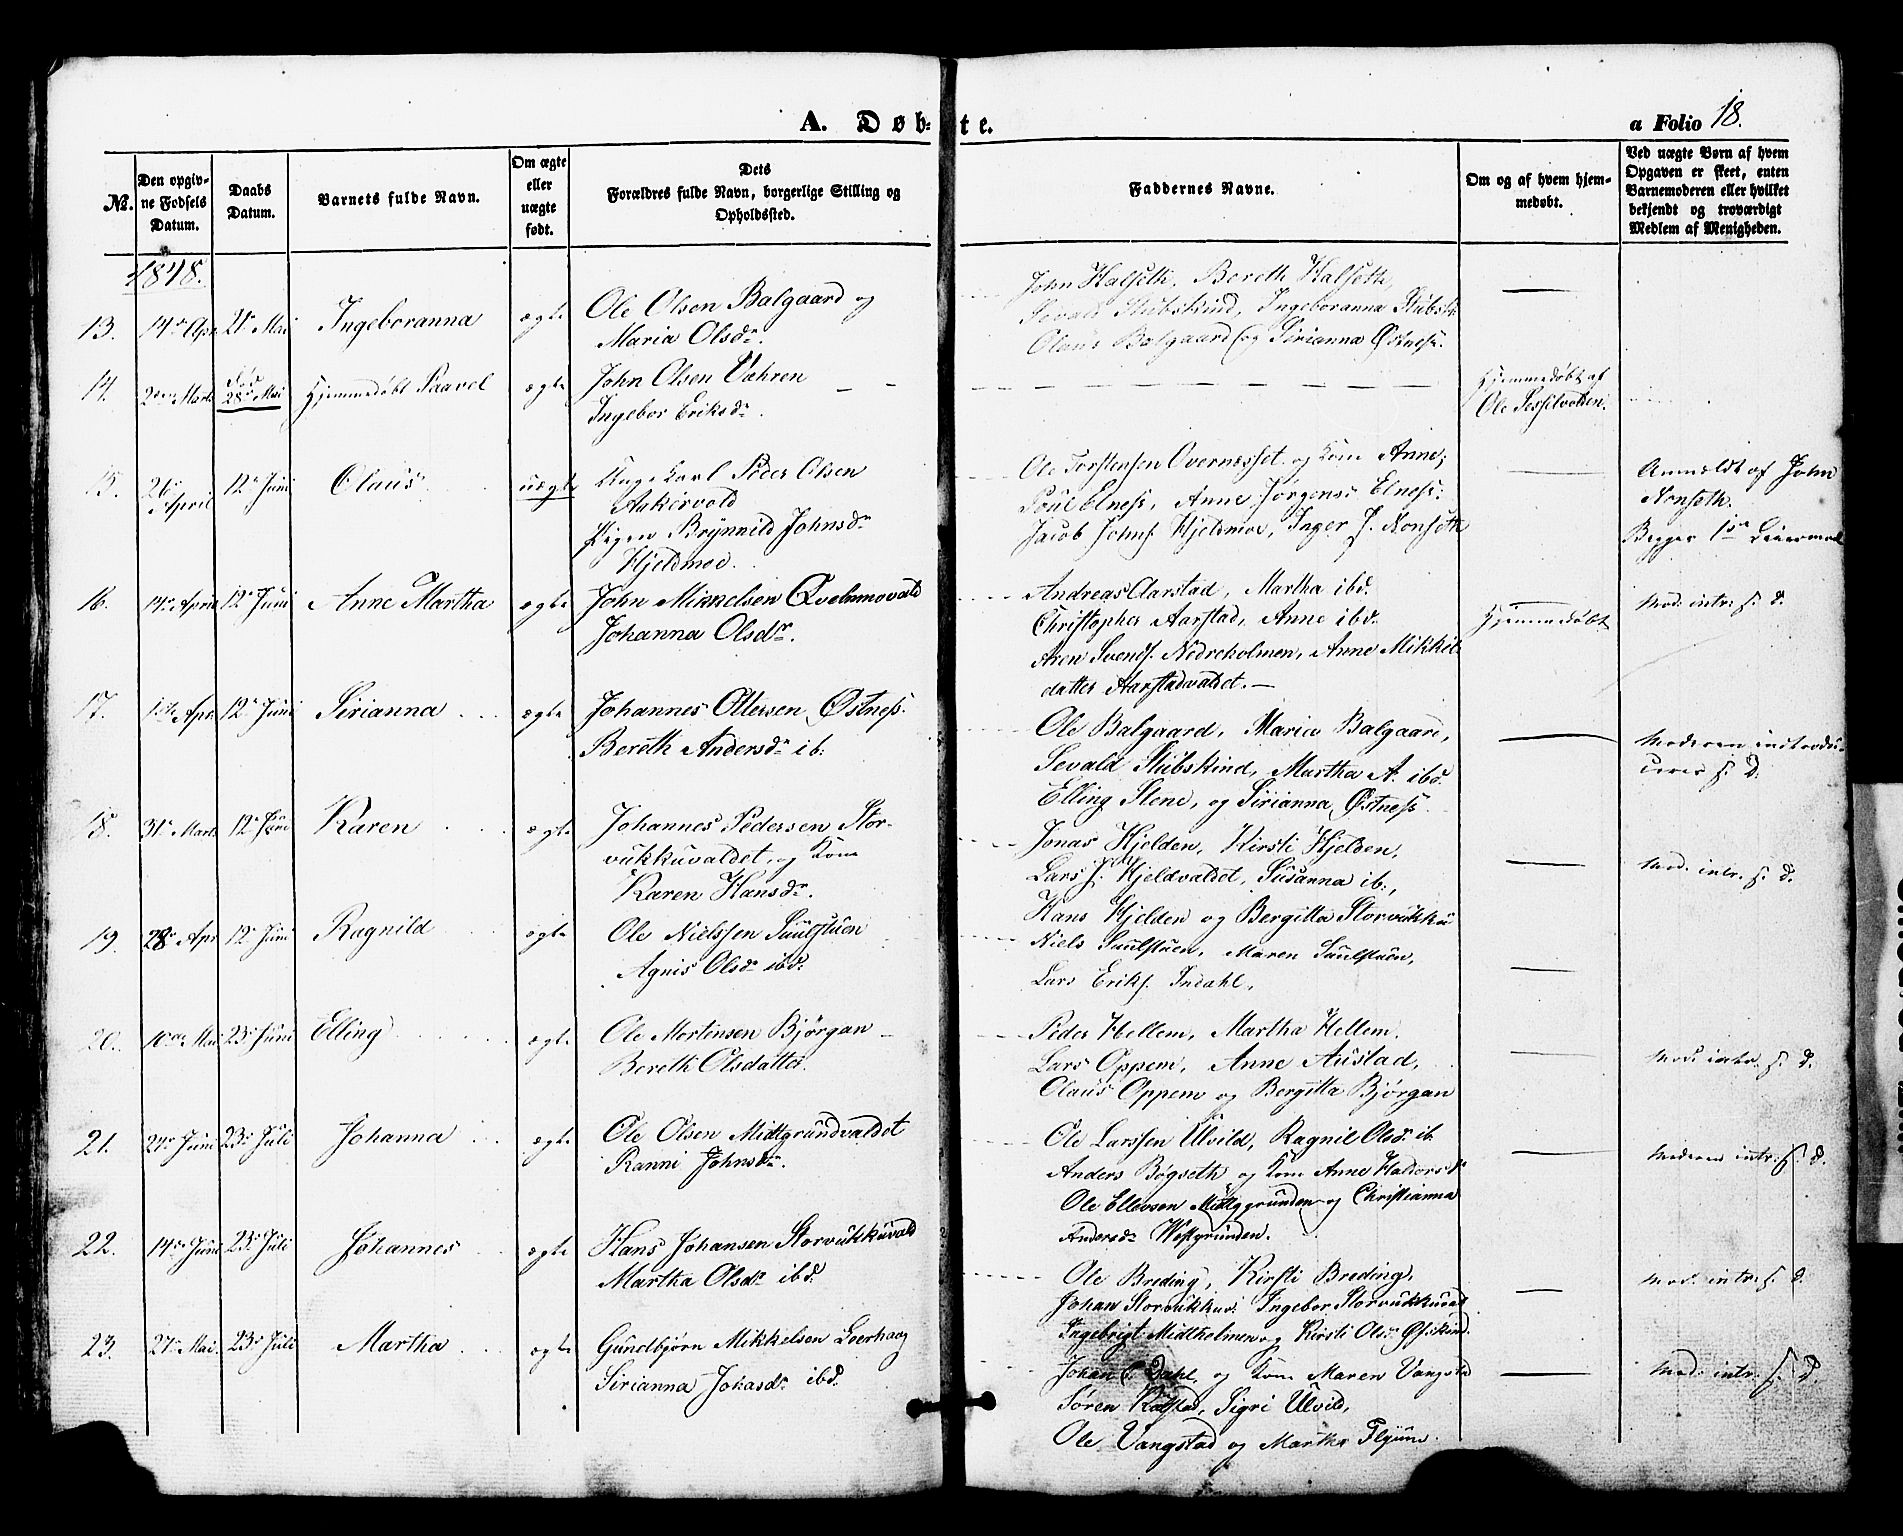 A. Døb-te.
a Folio 18.
No.
Den opgiv-
ne Fødsels
Datum.
Daabs
Datum.
Barnets fulde Navn.
Om ægte
eller
uægte
født.
Dets
Forældres fulde Navn, borgerlige Stilling og
Opholdssted.
Faddernes Navne.
Om og af hvem hjem-
medøbt.
Ved uægte Børn af hvem
Opgaven er skeet, enten
Barnemoderen eller hvilket
bekjendt og troværdigt
Medlem af Menigheden.
1848.
13. 14de Apr. 21de Mai Ingeboranna ægte Ole Olsen Balgaard og
Maria Olsdr.
John Halseth, Bereth Halseth,
Sevald Stubskind, Ingeboranna Stubsk.
Olaus Balgaard og Sirianna Østness.
14. Marts 28de Mai Hjemmedøbt Paavel ægte John Olsen Væhren
Ingebor Eriksdr.
Hjemmedøbt af
Ole Sesselvolden.
15. 26de April 12te Juni Olaus uægte Ungekarl Peder Olsen
Askervold
Pigen Brynnild Johnsdr
Hjeldmoe.
Ole Torstensen Overnesset og Kone Anne,
Poul Elness, Anne Jørgens Elness,
Jacob Johns. Hjeldmoe, Inger J. Nonseth
Anmeldt af John
Nonseth.
Begges 1ste Leiermaal
16. 14de April 12te Juni Anne Martha ægte John Mikkelsen Qvelmovald
Johanna Olsdr.
Andreas Aarstad, Martha ibd.
Christopher Aarstad, Anne ibd.
Aren Svends. Nedreholmen, Anne Mikkels
datter Aarstadvaldet.
Hjemmedøbt
Mod. intr. s. D.
17. Apr. 12te Juni Sirianna ægte Johannes Ottersen Østness.
Bereth Andersdr ib:
Ole Balgaard, Maria Balgaard,
Sevald Stubskind, Martha A. ibd.
Elling Stene, og Sirianna Østness
Moderen introdu-
ceres s. D.
18. 31te Marts 12te Juni Karen ægte Johannes Pedersen Stor-
vukkuvaldet, og Kone
Karen Hansdr.
Jonas Hjelden, Kirsti Hjelden,
Lars J. Hjeldvaldet, Susanna ib.,
Hans Hjelden og Bergitta Storvukku
Mod. intr. s. D.
19. 28de Apr. 12te Juni Ragnild ægte Ole Nielssen Suulstuen
Agnis Olsdr ibd.
Niels Suulstuen, Maren Suulstuen,
Lars Eriks. Indahl,
20. 10de Mai 23de Juni Elling ægte Ole Mortensen Bjørgan
Bereth Olsdatter.
Peder Hellem, Martha Hellem.
Lars Oppem, Anne Austad,
Olaus Oppem og Bergitta Bjørgan
Mod. intr. s. D.
21. 24de Juni 23de Juli Johanna ægte Ole Olsen Midtgrundvaldet
Ranni Johnsdr.
Ole Larssen Ulvild, Ragnil Olsdr ib.
Anders Bøgseth og Kone Anne Haldorsdr
Ole Ellevsen Midtgrunden og Christianna
Andersdr Westgrunden.
Moderen intr. s. D.
22. 14de Juni 23de Juli Johannes ægte Hans Johansen Storvukkuvald
Martha Olsdr ibd.
Ole Breding, Kirsti Breding,
Johan Storvukkuv. Ingebor Storvukkuvald
Ingebrigt Midtholmen og Kirsti Olsdr
Mod. intr. s. D.
23. 27de Mai. 23de Juli Martha ægte Gundbjørn Mikkelsen Leerhaag
Sirianna Johasdr ibd.
Johan Dahl, og Kone Maren Vangstad
Søren Sigri Ulvild,
Ole Vangstad og Martha
Mod. intr. s. D.